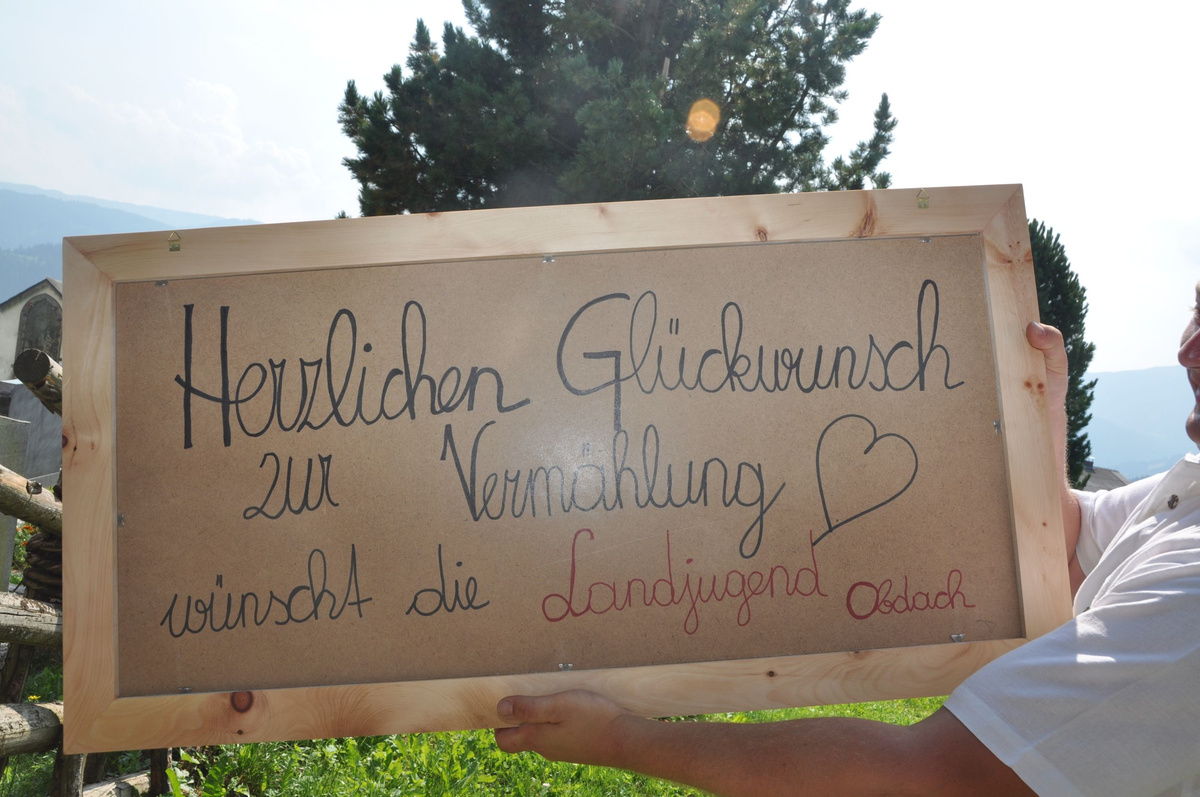 Herzlichen Glückwunsch
zur Vermählung
wünscht die Landjugend Obdach